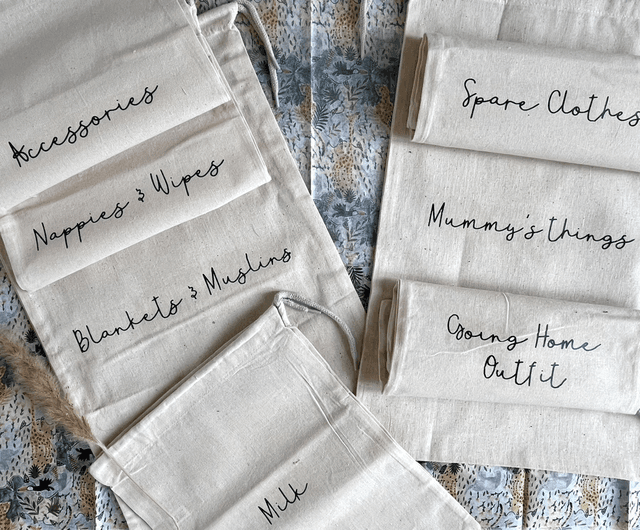 Accessories
Nappies & Wipes
Blankets & Muslins
Milk
Spare Clothes
Mummy's things
Going Home
Outfit